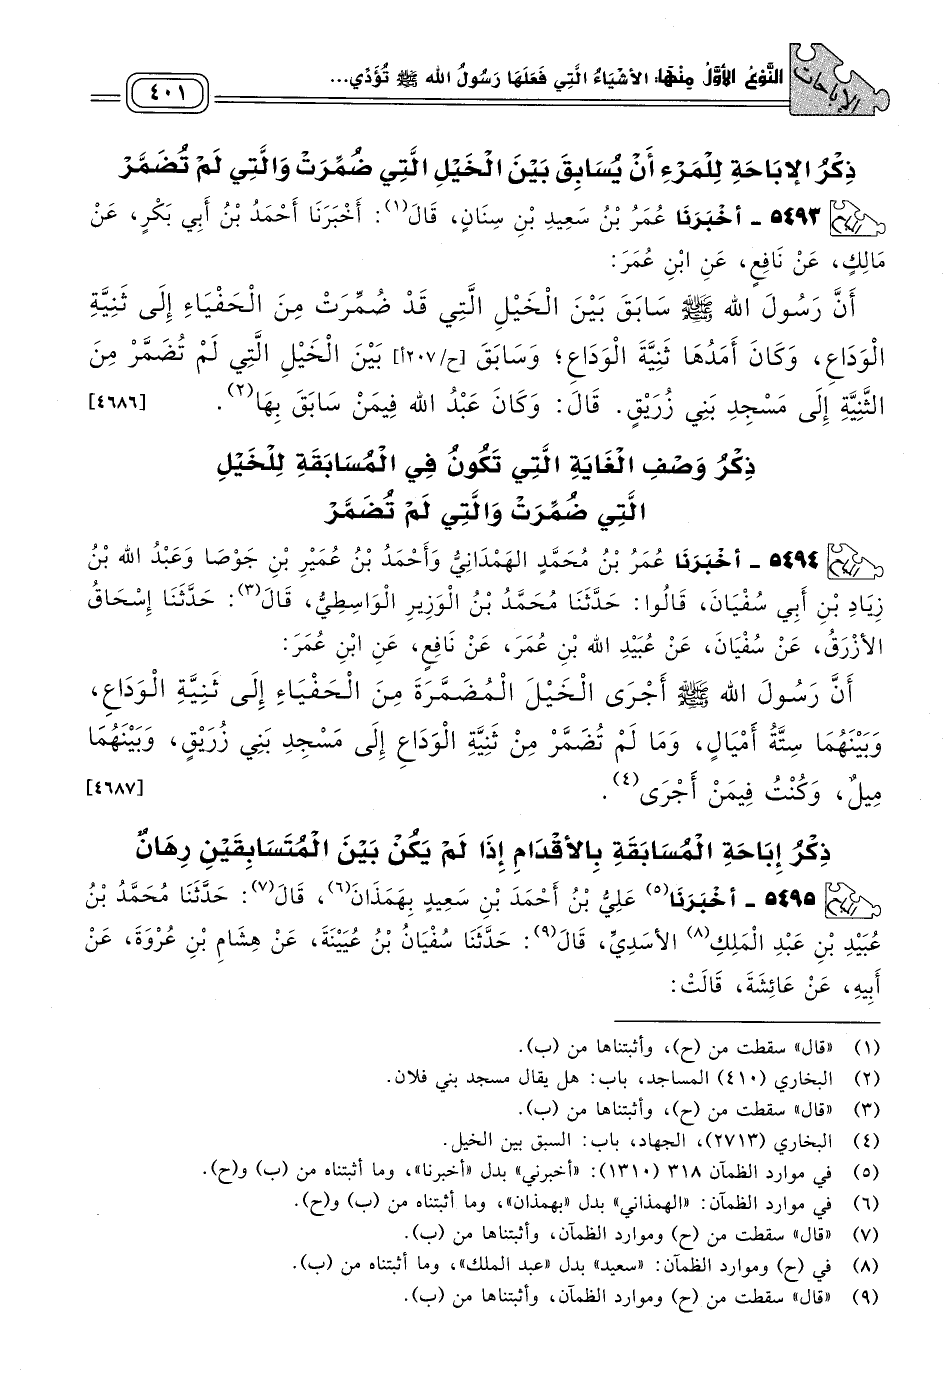 الإباحات
النَّوْعُ الأَوَّلُ مِنْهَا: الأَشْيَاءُ الَّتِي فَعَلَهَا رَسُولُ الله ﷺ تُؤَدِّي...
٤٠١
ذِكْرُ الإِبَاحَةِ لِلْمَرْءِ أَنْ يُسَابِقَ بَيْنَ الْخَيْلِ الَّتِي ضُمِّرَتْ وَالَّتِي لَمْ تُضَمَّرْ
٥٤٩٣ ـ أخْبَرَنَا عُمَرُ بْنُ سَعِيدِ بْنِ سِنَانٍ، قَالَ(١): أَخْبَرَنَا أَحْمَدُ بْنُ أَبِي بَكْرٍ، عَنْ
مَالِكٍ، عَنْ نَافِعٍ، عَنِ ابْنِ عُمَرَ:
أَنَّ رَسُولَ الله ﷺ سَابَقَ بَيْنَ الْخَيْلِ الَّتِي قَدْ ضُمِّرَتْ مِنَ الْحَفْيَاءِ إِلَى ثَنِيَّةِ
الْوَدَاعِ، وَكَانَ أَمَدُهَا ثَنِيَّةَ الْوَدَاعِ؛ وَسَابَقَ [ح/٢٠٧أ] بَيْنَ الْخَيْلِ الَّتِي لَمْ تُضَمَّرْ مِنَ
الثَّنِيَّةِ إِلَى مَسْجِدِ بَنِي زُرَيْقٍ. قَالَ: وَكَانَ عَبْدُ الله فِيمَنْ سَابَقَ بِهَا(٢). [٤٦٨٦]
ذِكْرُ وَصْفِ الْغَايَةِ الَّتِي تَكُونُ فِي الْمُسَابَقَةِ لِلْخَيْلِ
الَّتِي ضُمِّرَتْ وَالَّتِي لَمْ تُضَمَّرْ
٥٤٩٤ ـ أخْبَرَنَا عُمَرُ بْنُ مُحَمَّدٍ الهَمْدَانِيُّ وَأَحْمَدُ بْنُ عُمَيْرِ بْنِ جَوْصَا وَعَبْدُ الله بْنُ
زِيَادِ بْنِ أَبِي سُفْيَانَ، قَالُوا: حَدَّثَنَا مُحَمَّدُ بْنُ الْوَزِيرِ الْوَاسِطِيُّ، قَالَ(٣): حَدَّثَنَا إِسْحَاقُ
الأَزْرَقُ، عَنْ سُفْيَانَ، عَنْ عُبَيْدِ الله بْنِ عُمَرَ، عَنْ نَافِعٍ، عَنِ ابْنِ عُمَرَ:
أَنَّ رَسُولَ الله ﷺ أَجْرَى الْخَيْلَ الْمُضَمَّرَةَ مِنَ الْحَفْيَاءِ إِلَى ثَنِيَّةِ الْوَدَاعِ،
وَبَيْنَهُمَا سِتَّةُ أَمْيَالٍ، وَمَا لَمْ تُضَمَّرْ مِنْ ثَنِيَّةِ الْوَدَاعِ إِلَى مَسْجِدِ بَنِي زُرَيْقٍ، وَبَيْنَهُمَا
مِيلٌ، وَكُنْتُ فِيمَنْ أَجْرَى(٤). [٤٦٨٧]
ذِكْرُ إِبَاحَةِ الْمُسَابَقَةِ بِالأَقْدَامِ إِذَا لَمْ يَكُنْ بَيْنَ الْمُتَسَابِقَيْنِ رِهَانٌ
٥٤٩٥ ـ أخْبَرَنَا(٥) عَلِيُّ بْنُ أَحْمَدَ بْنِ سَعِيدٍ بِهَمَذَانَ(٦)، قَالَ(٧): حَدَّثَنَا مُحَمَّدُ بْنُ
عُبَيْدِ بْنِ عَبْدِ الْمَلِكِ(٨) الأَسَدِيِّ، قَالَ(٩): حَدَّثَنَا سُفْيَانُ بْنُ عُيَيْنَةَ، عَنْ هِشَامِ بْنِ عُرْوَةَ، عَنْ
أَبِيهِ، عَنْ عَائِشَةَ، قَالَتْ:
(١) «قال» سقطت من (ح)، وأثبتناها من (ب).
(٢) البخاري (٤١٠) المساجد، باب: هل يقال مسجد بني فلان.
(٣) «قال» سقطت من (ح)، وأثبتناها من (ب).
(٤) البخاري (٢٧١٣)، الجهاد، باب: السبق بين الخيل.
(٥) في موارد الظمآن ٣١٨ (١٣١٠): «أخبرني» بدل «أخبرنا»، وما أثبتناه من (ب) و(ح).
(٦) في موارد الظمآن: «الهمذاني» بدل «بهمذان»، وما أثبتناه من (ب) و(ح).
(٧) «قال» سقطت من (ح) وموارد الظمآن، وأثبتناها من (ب).
(٨) في (ح) وموارد الظمآن: «سعيد» بدل «عبد الملك»، وما أثبتناه من (ب).
(٩) «قال» سقطت من (ح) وموارد الظمآن، وأثبتناها من (ب).